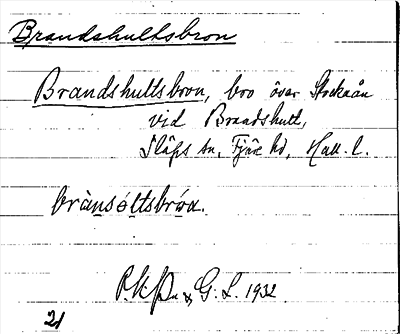 Brandshultsbron
Brandshultsbron, bro över Stockaån
vid Brandshult,
Släps sn, Fjäre hd, Hall. l.
brànsóltsbrón.
& G. L. 1932
21